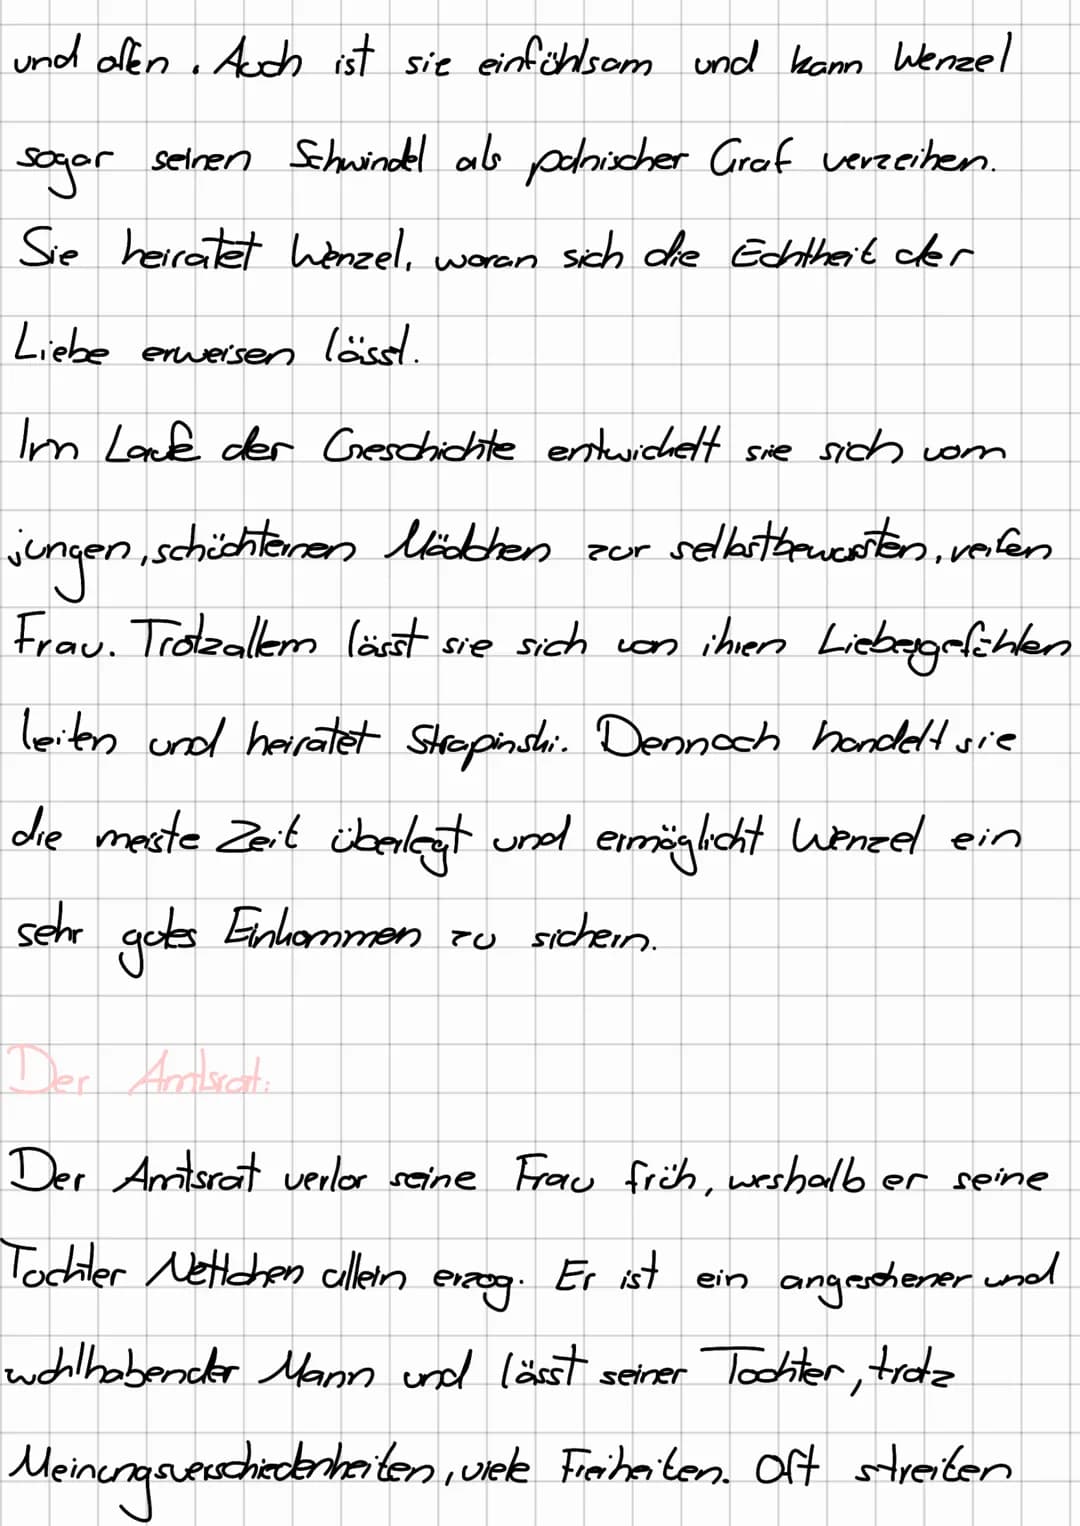 und offen. Auch ist sie einfühlsam und kann Wenzel
sogar seinen Schwindel als polnischer Graf verzeihen.
Sie heiratet Wenzel, woran sich die Echtheit der
Liebe erweisen lässt.
Im Laufe der Geschichte entwickelt sie sich vom
jungen, schüchternen Mädchen zur selbstbewussten, reifen
Frau. Trotzallem lässt sie sich von ihren Liebesgefühlen
leiten und heiratet Strapinski. Dennoch handelt sie
die meiste Zeit überlegt und ermöglicht Wenzel ein
sehr gutes Einkommen zu sichern.
Der Amtsrat:
Der Amtsrat verlor seine Frau früh, weshalb er seine
Tochter Nettchen allein erzog. Er ist ein angesehener und
wohlhabender Mann und lässt seiner Tochter, trotz
Meinungsverschiedenheiten, viele Freiheiten. Oft streiten